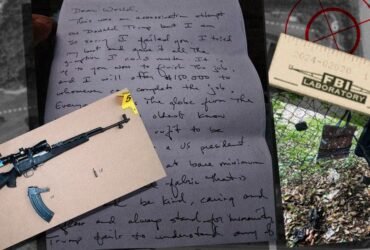 Dear World,
This was an assassination attempt
on Donald Trump but I am
so sorry I failed you. I tried
my best and gave it all the
gumption I could muster. It is
up to you now to finish the job
and I will offer $150,000 to
whomever can complete the job
Everyone the globe from the
oldest know
ought to be
a US president
at bare minimum
fabric that is
be kind, caring and
and always stand for humanity
Trump fails to understand any of
FBI
LABORATORY